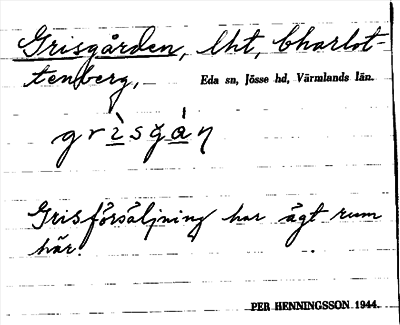 Grisgården, lht, Charlot-
tenberg,
Eda sn, Jösse hd, Värmlands län.
grìsgàṇ
Grisförsäljning har ägt rum
här.
PER HENNINGSSON 1944.